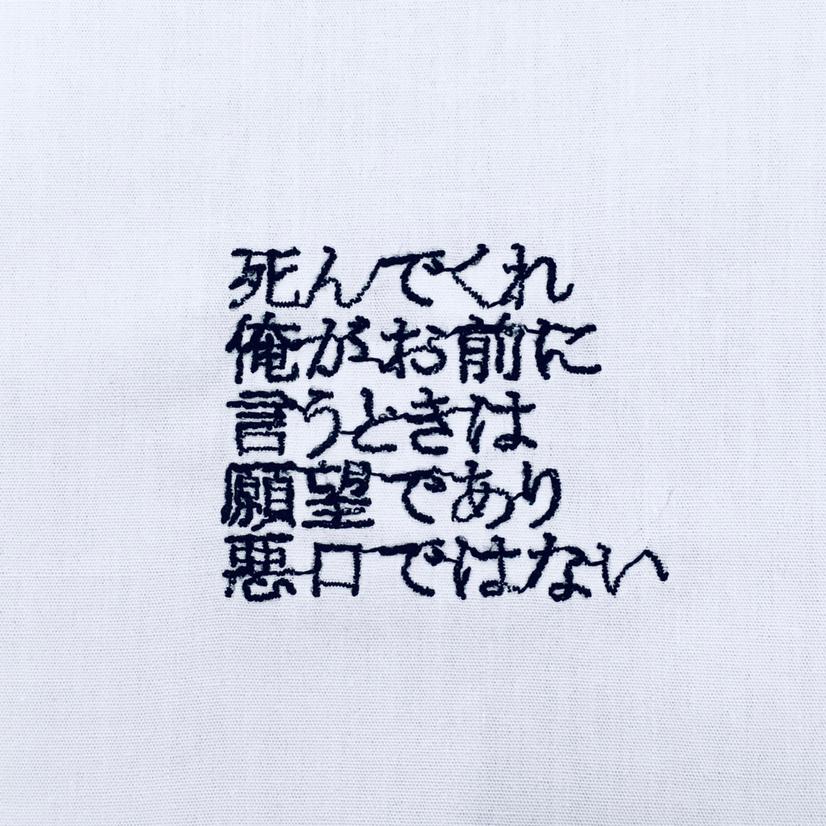 死んでくれ
俺がお前に
言うときは
願望であり
悪口ではない